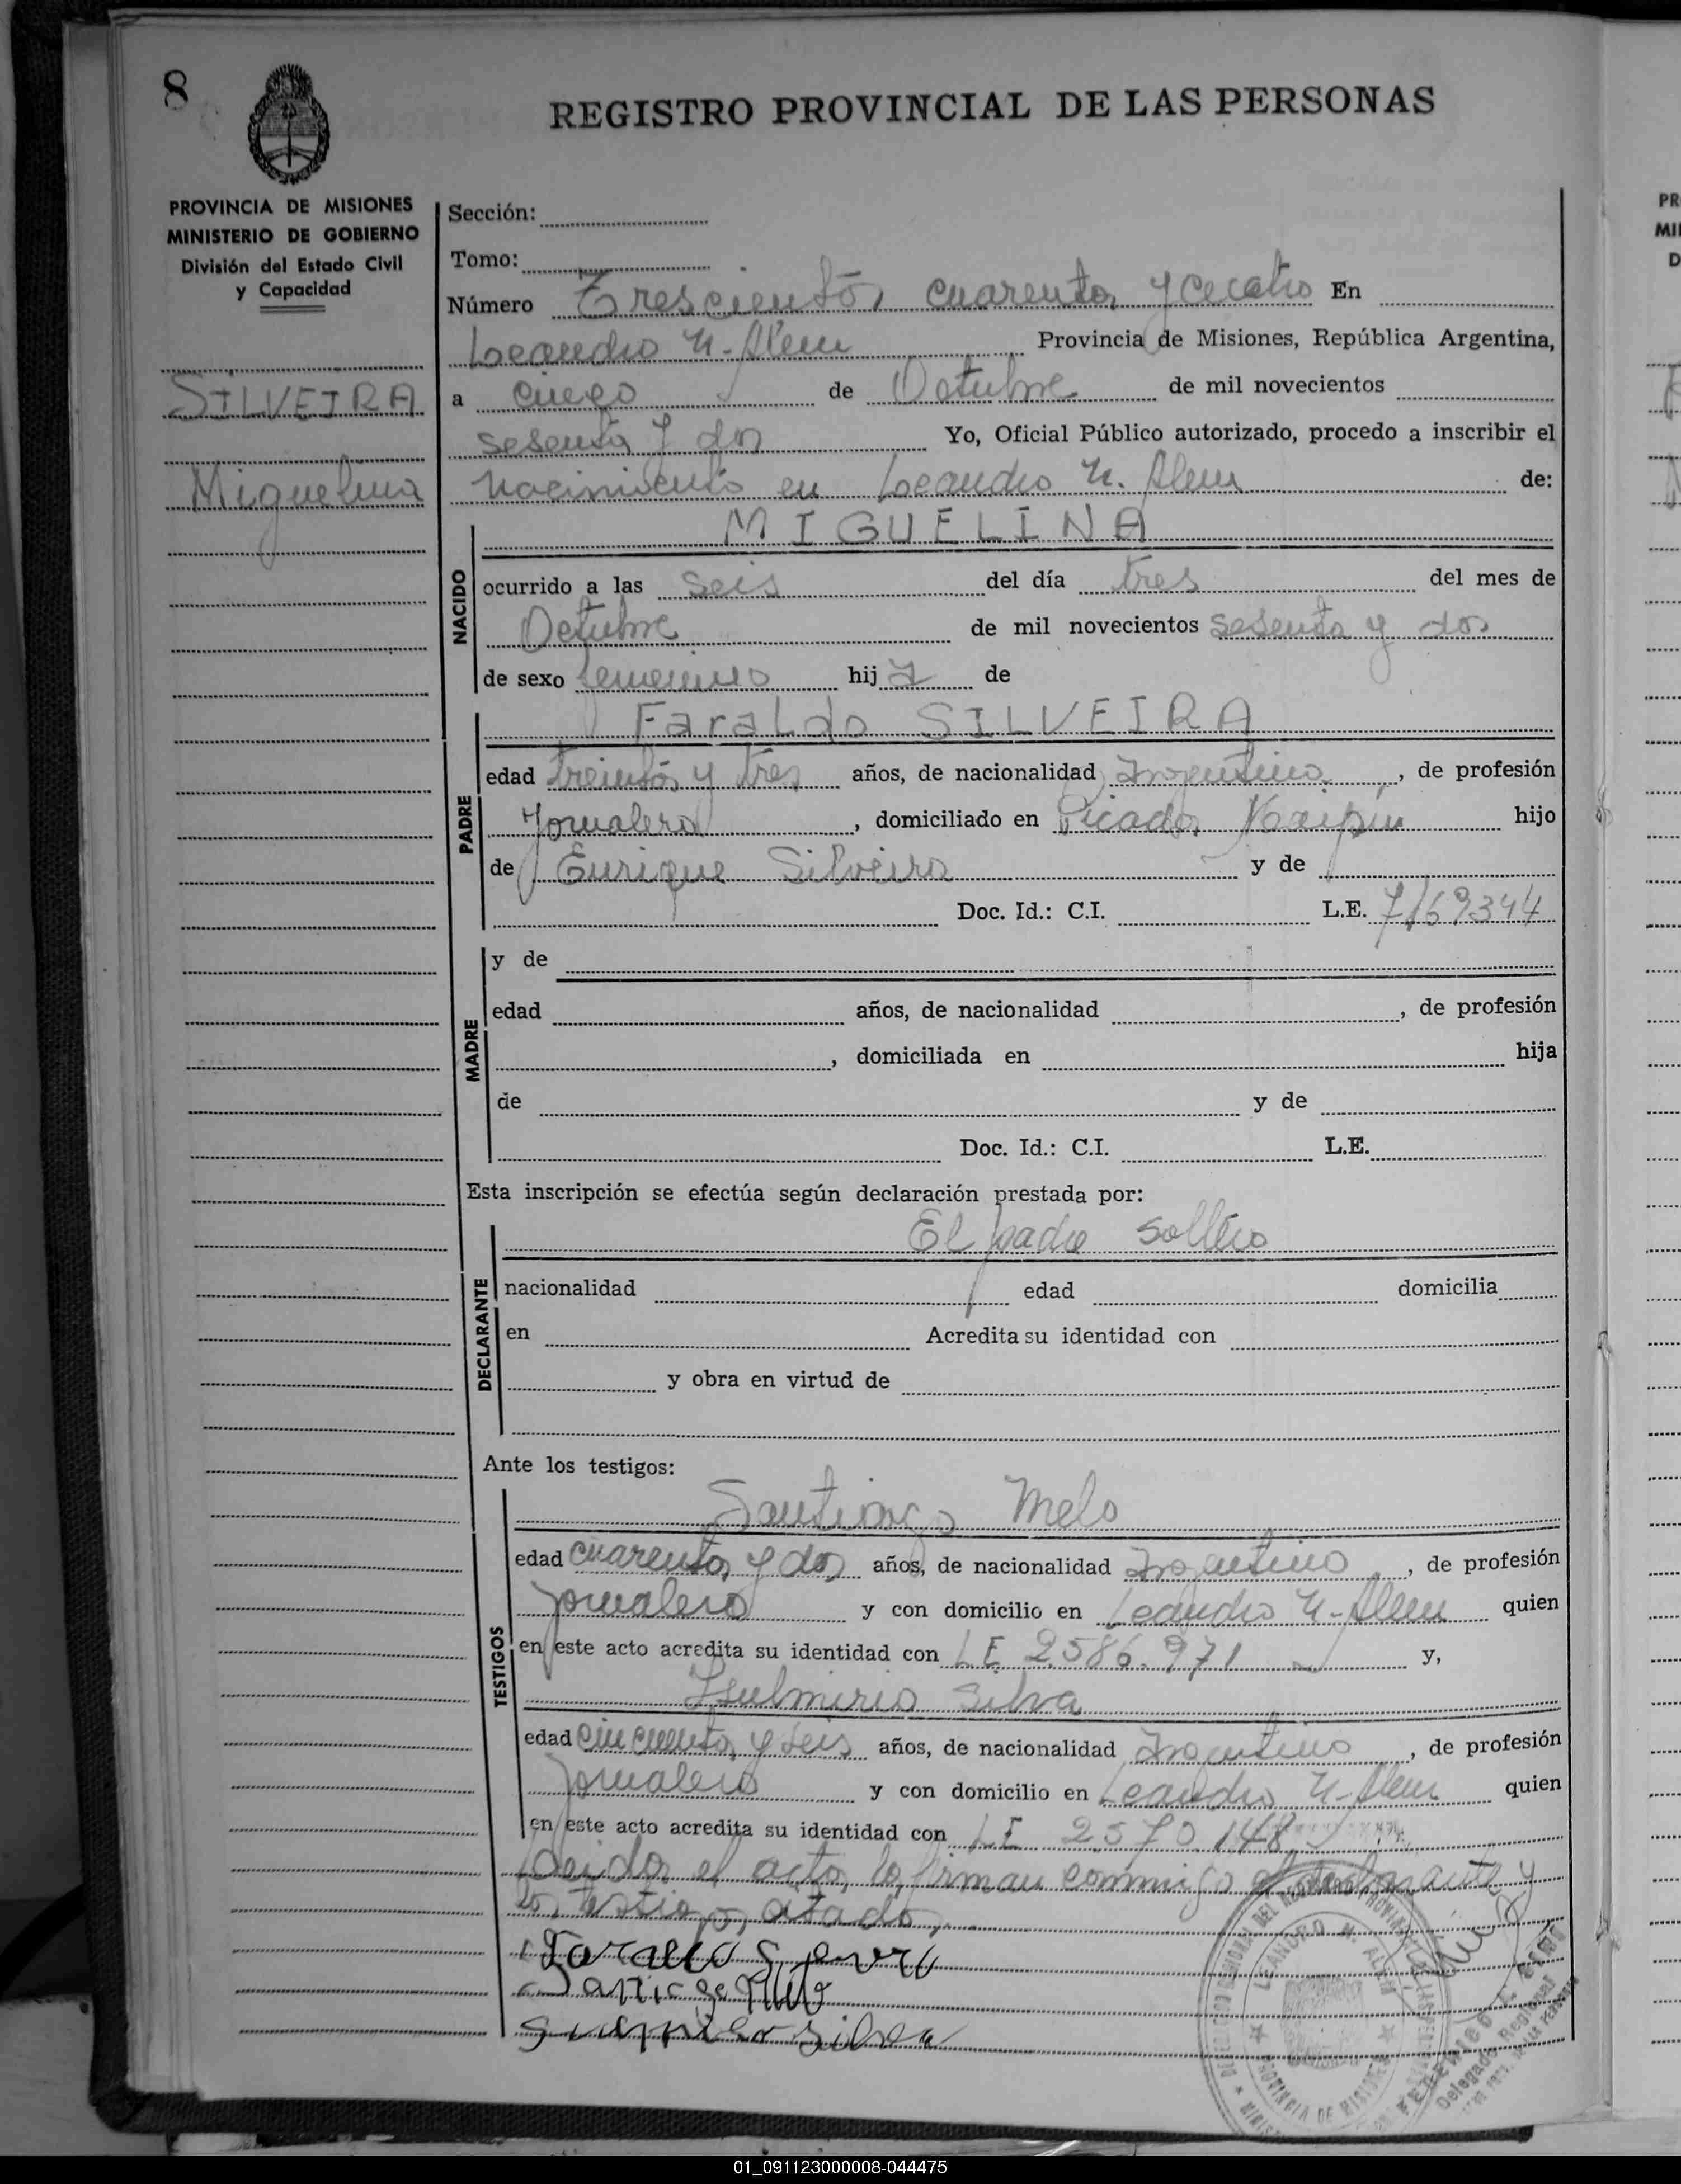 8
REGISTRO PROVINCIAL DE LAS PERSONAS
PROVINCIA DE MISIONES
MINISTERIO DE GOBIERNO
División del Estado Civil
y Capacidad
SILVEIRA
Miguelina
Sección:
Tomo:
Número Trescientos cuarenta y cuatro En
Leandro N. Alem Provincia de Misiones, República Argentina,
a cinco de Octubre de mil novecientos
sesenta y dos Yo, Oficial Público autorizado, procedo a inscribir el
nacimiento en Leandro N. Alem de:
NACIDO
MIGUELINA
ocurrido a las seis del día tres del mes de
Octubre de mil novecientos sesenta y dos
de sexo femenino hija de
PADRE
Faraldo SILVEIRA
edad treinta y tres años, de nacionalidad Argentina, de profesión
Jornalero, domiciliado en Picada hijo
de Enrique Silveira y de
Doc. Id.: C.I. L.E. 7169344
MADRE
y de
edad años, de nacionalidad , de profesión
, domiciliada en hija
de y de
Doc. Id.: C.I. L.E.
Esta inscripción se efectúa según declaración prestada por:
DECLARANTE
El padre soltero
nacionalidad edad domicilia
en Acredita su identidad con
y obra en virtud de
Ante los testigos:
TESTIGOS
Santiago Melo
edad cuarenta y dos años, de nacionalidad Argentino, de profesión
Jornalero y con domicilio en Leandro N. Alem quien
en este acto acredita su identidad con LE 2586.971 y,
Silva
edad cincuenta y seis años, de nacionalidad Argentino, de profesión
Jornalero y con domicilio en Leandro N. Alem quien
en este acto acredita su identidad con LE 2570.148
Leida el acta, la firman conmigo el declarante y
los testigos citados.
LEANDRO N. ALEM
PROVINCIA DE MISIONES
FEDERICO
Delegado Regional
01_091123000008-044475